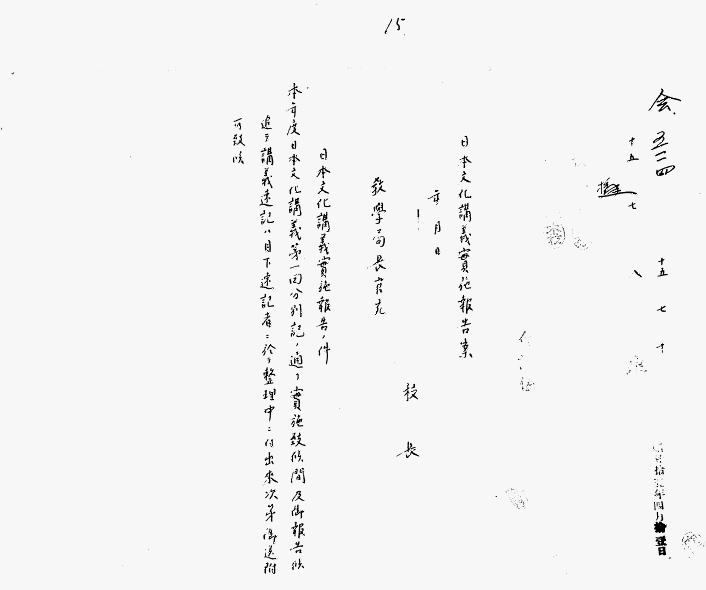 15
会 五二四
十五 七
十五 七 十
日本文化講義實施報告案
年 月 日
校 長
教學局長官宛
日本文化講義實施報告ノ件
本年度日本文化講義第一回分別記ノ通リ實施致候間及御報告候
追テ講義速記ハ目下速記者ニ於テ整理中ニ付出來次第御送附
可致候